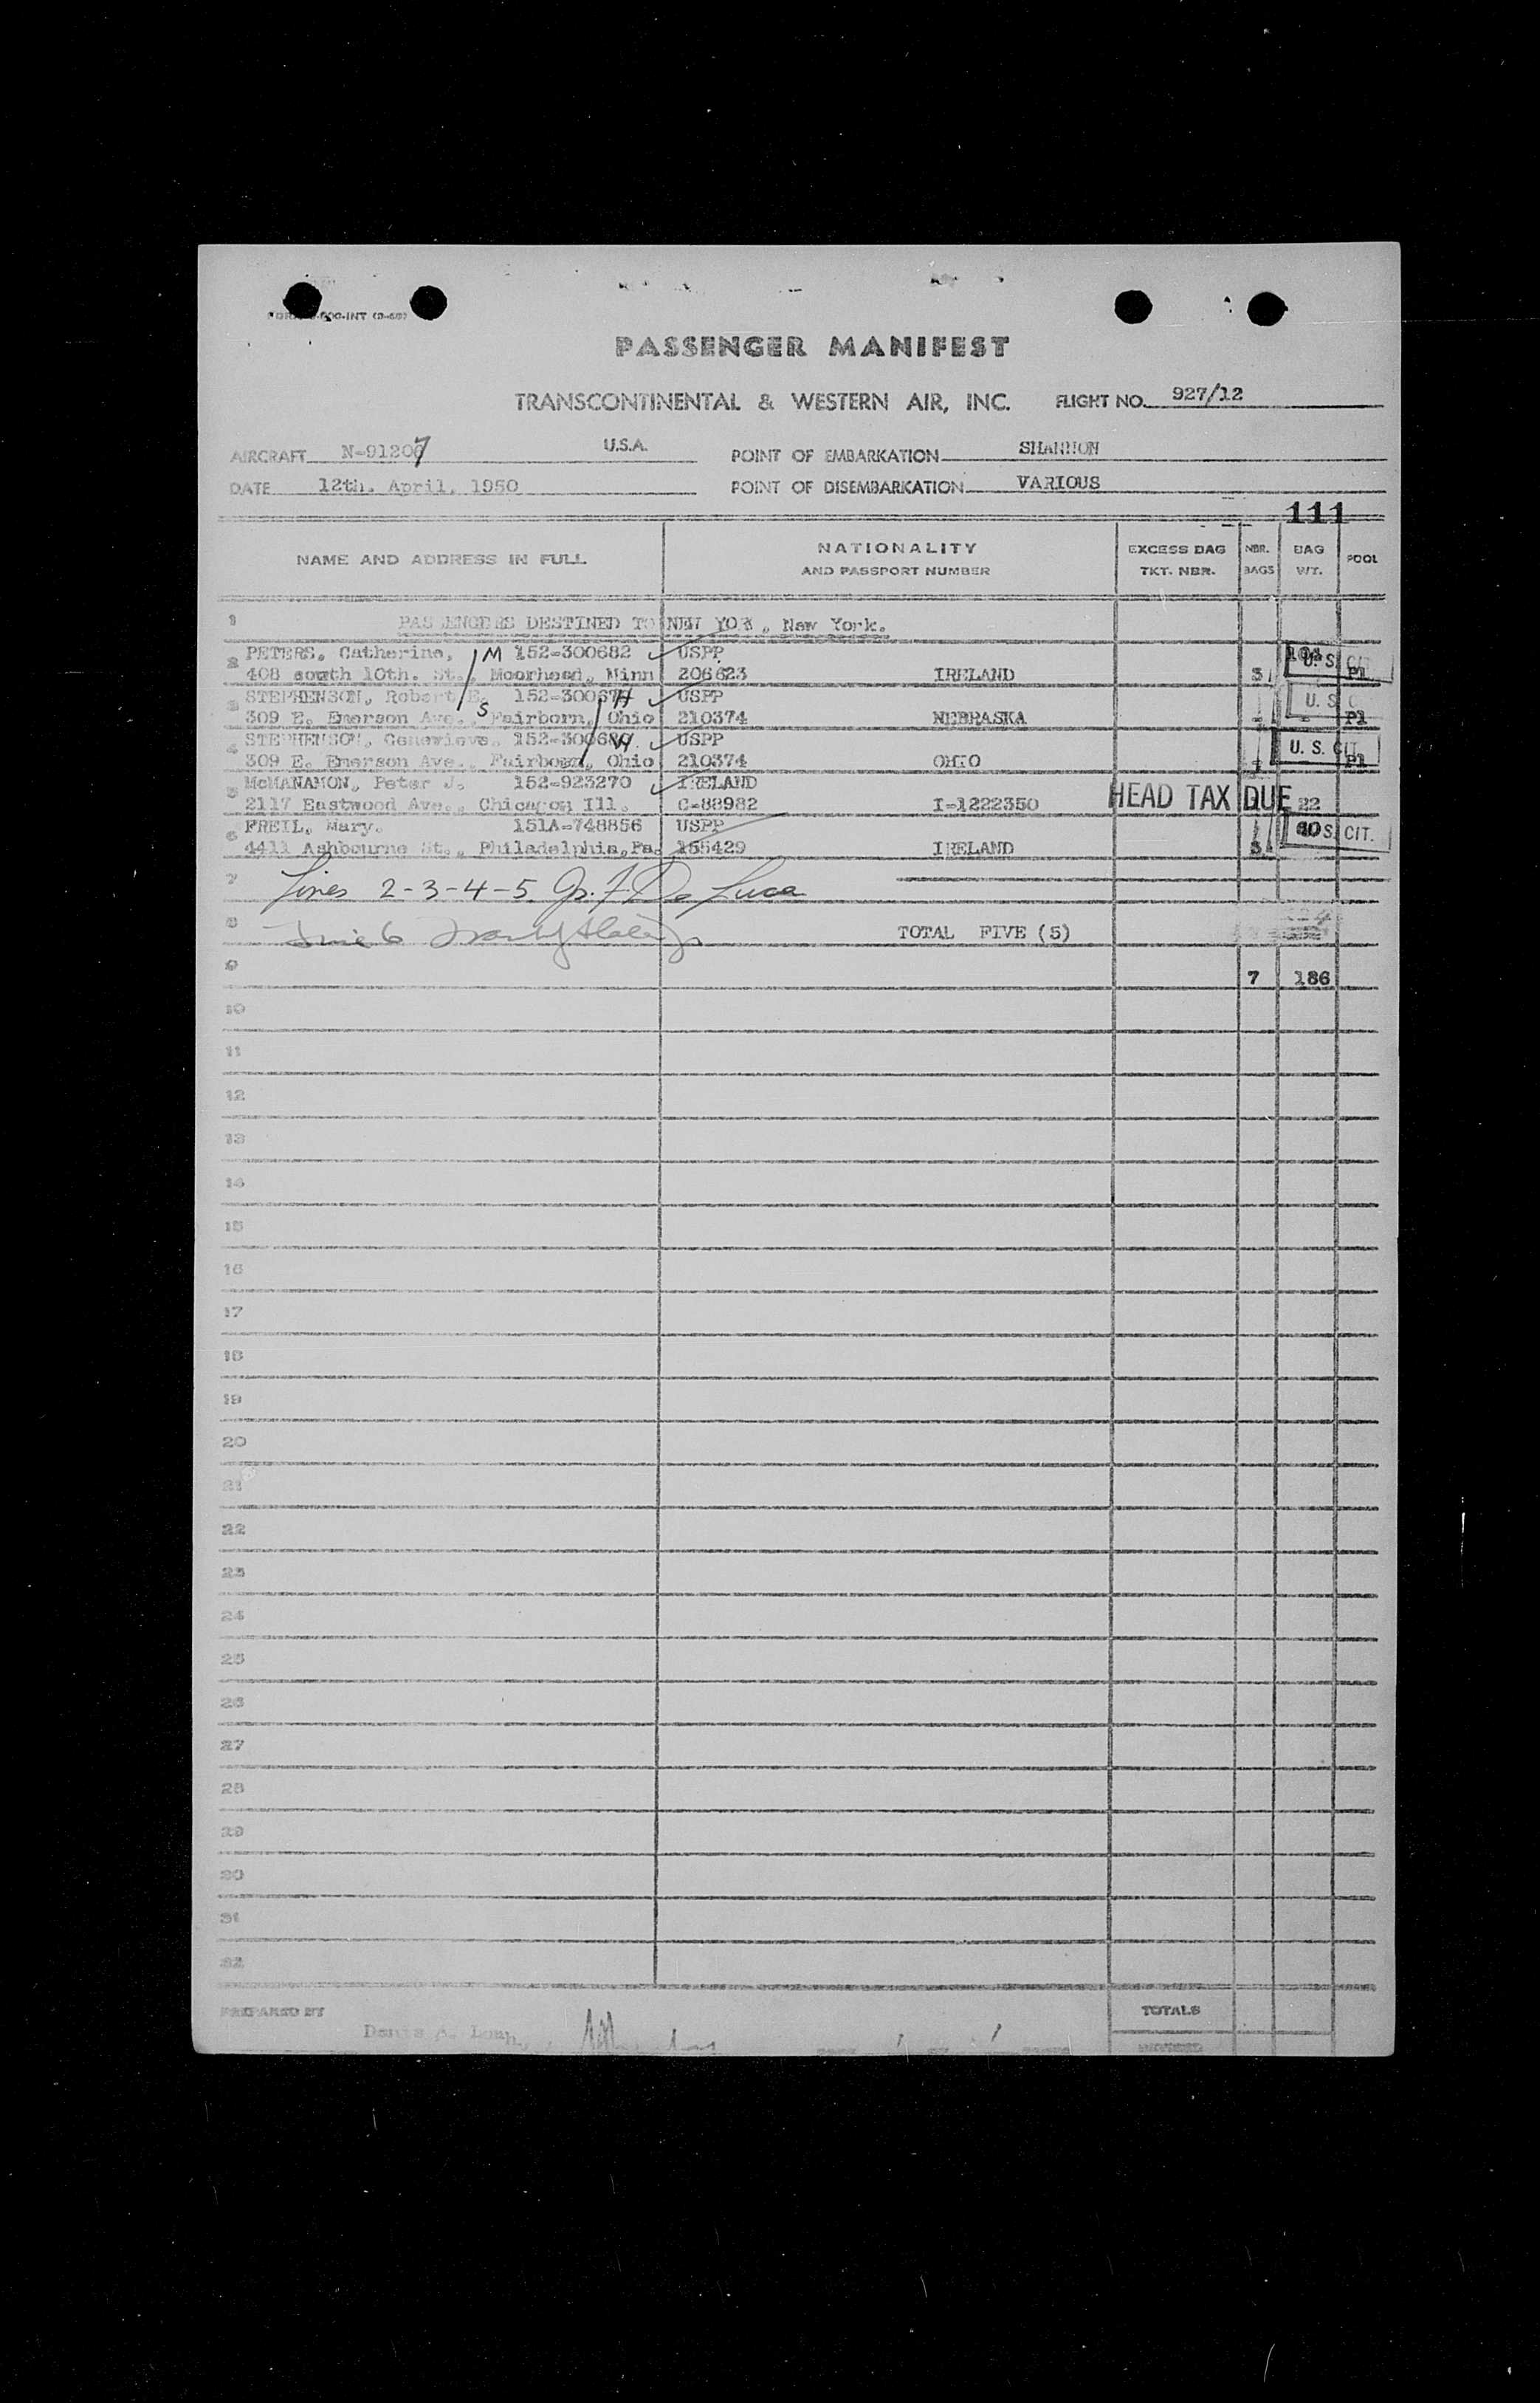 PASSENGER MANIFEST
TRANSCONTINENTAL & WESTERN AIR, INC. FLIGHT NO. 927/12
AIRCRAFT N-91207 U.S.A. POINT OF EMBARKATION SHANNON
DATE 12th. April, 1950 POINT OF DISEMBARKATION VARIOUS
111
NAME AND ADDRESS IN FULL NATIONALITY AND PASSPORT NUMBER EXCESS BAG TKT. NBR. NBR. BAGS BAG WT. POOL
1 PASSENGERS DESTINED TO NEW YORK, New York.
2 PETERS, Catherine, M 152-300682 USPP
408 south 10th. St., Moorhead, Minn 206623 IRELAND 3 U. S. CIT. P1
3 STEPHENSON, Robert E. S 152-300679 H USPP
309 E. Emerson Ave., Fairborn, Ohio 210374 NEBRASKA - U. S. P1
4 STEPHENSON, Genevieve. 152-300680 W. USPP
309 E. Emerson Ave., Fairborn, Ohio 210374 OHIO U. S. CIT. P1
5 McMANAMON, Peter J. 152-923270 IRELAND
2117 Eastwood Ave., Chicagon Ill. C-88982 I-1222350 HEAD TAX DUE 22
6 FREIL, Mary. 151A-748856 USPP
4411 Ashbourne St., Philadelphia, Pa. 155429 IRELAND 3 S. CIT.
7 Lines 2-3-4-5. Jos. F. De Luca
8 Line 6 TOTAL FIVE (5)
9 7 186
10
11
12
13
14
15
16
17
18
19
20
21
22
23
24
25
26
27
28
29
30
31
32
PREPARED BY TOTALS
Denis A.